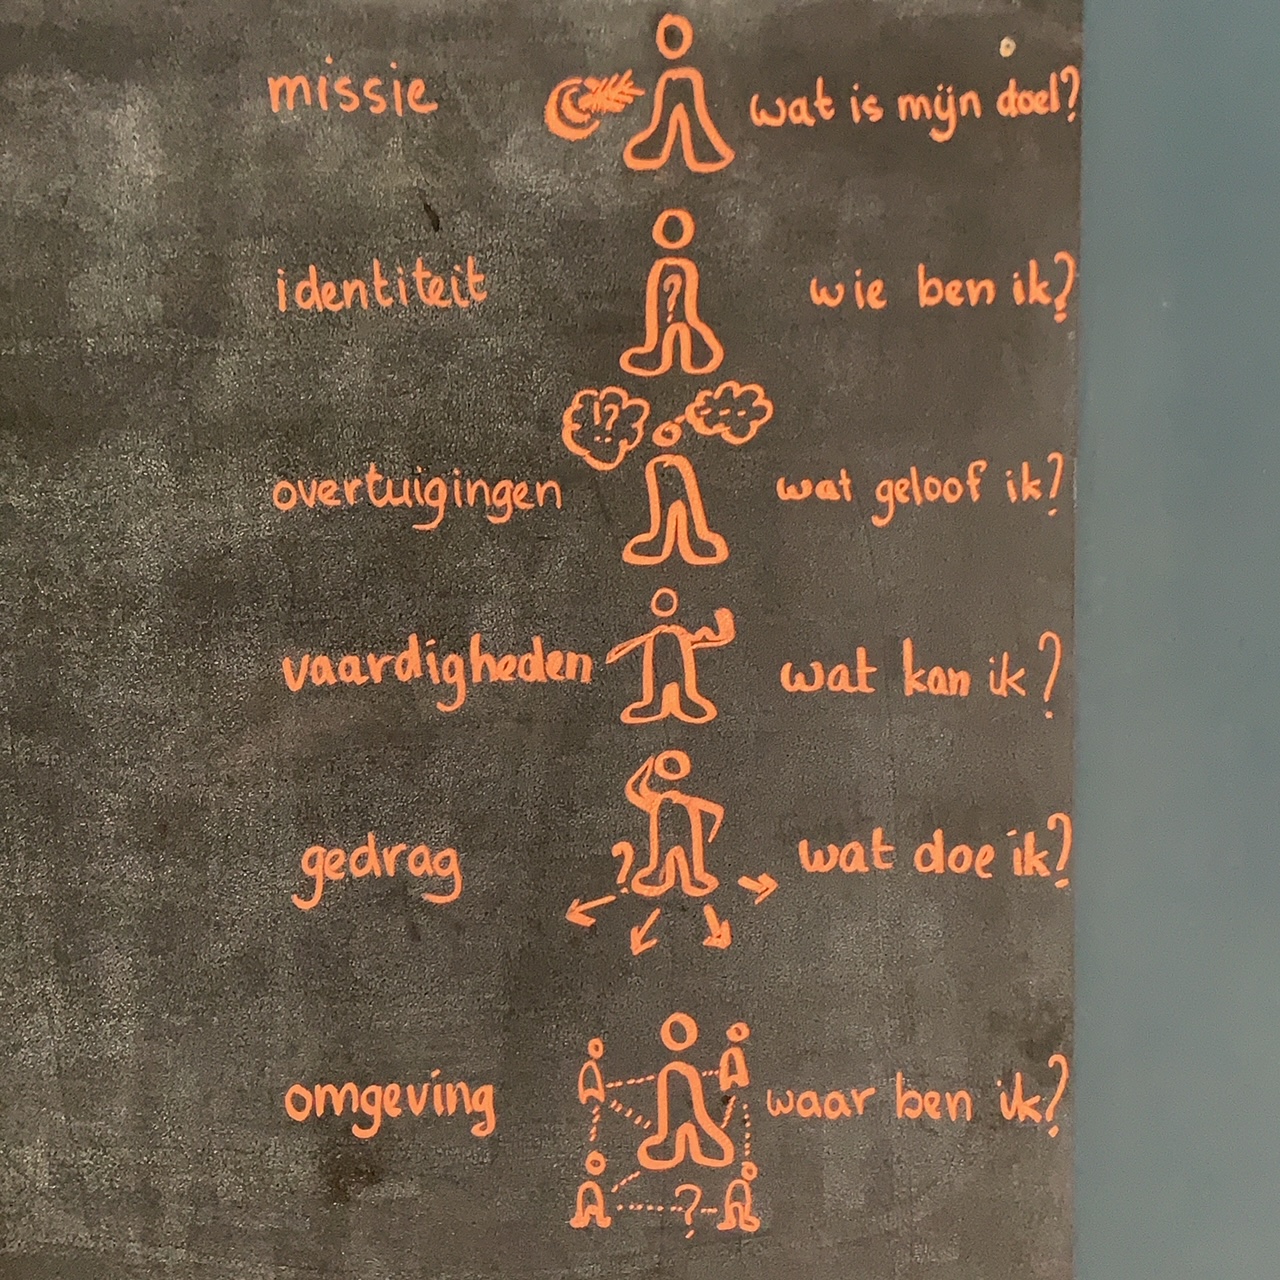 missie wat is mijn doel?
identiteit ? wie ben ik?
!?
overtuigingen wat geloof ik?
vaardigheden wat kan ik?
gedrag ? wat doe ik?
omgeving waar ben ik?
?